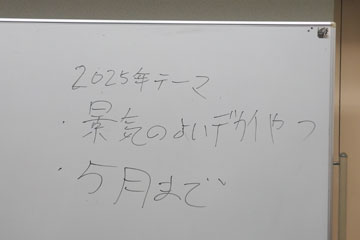 2025年テーマ
・景気のよいデカイやつ
・5月まで